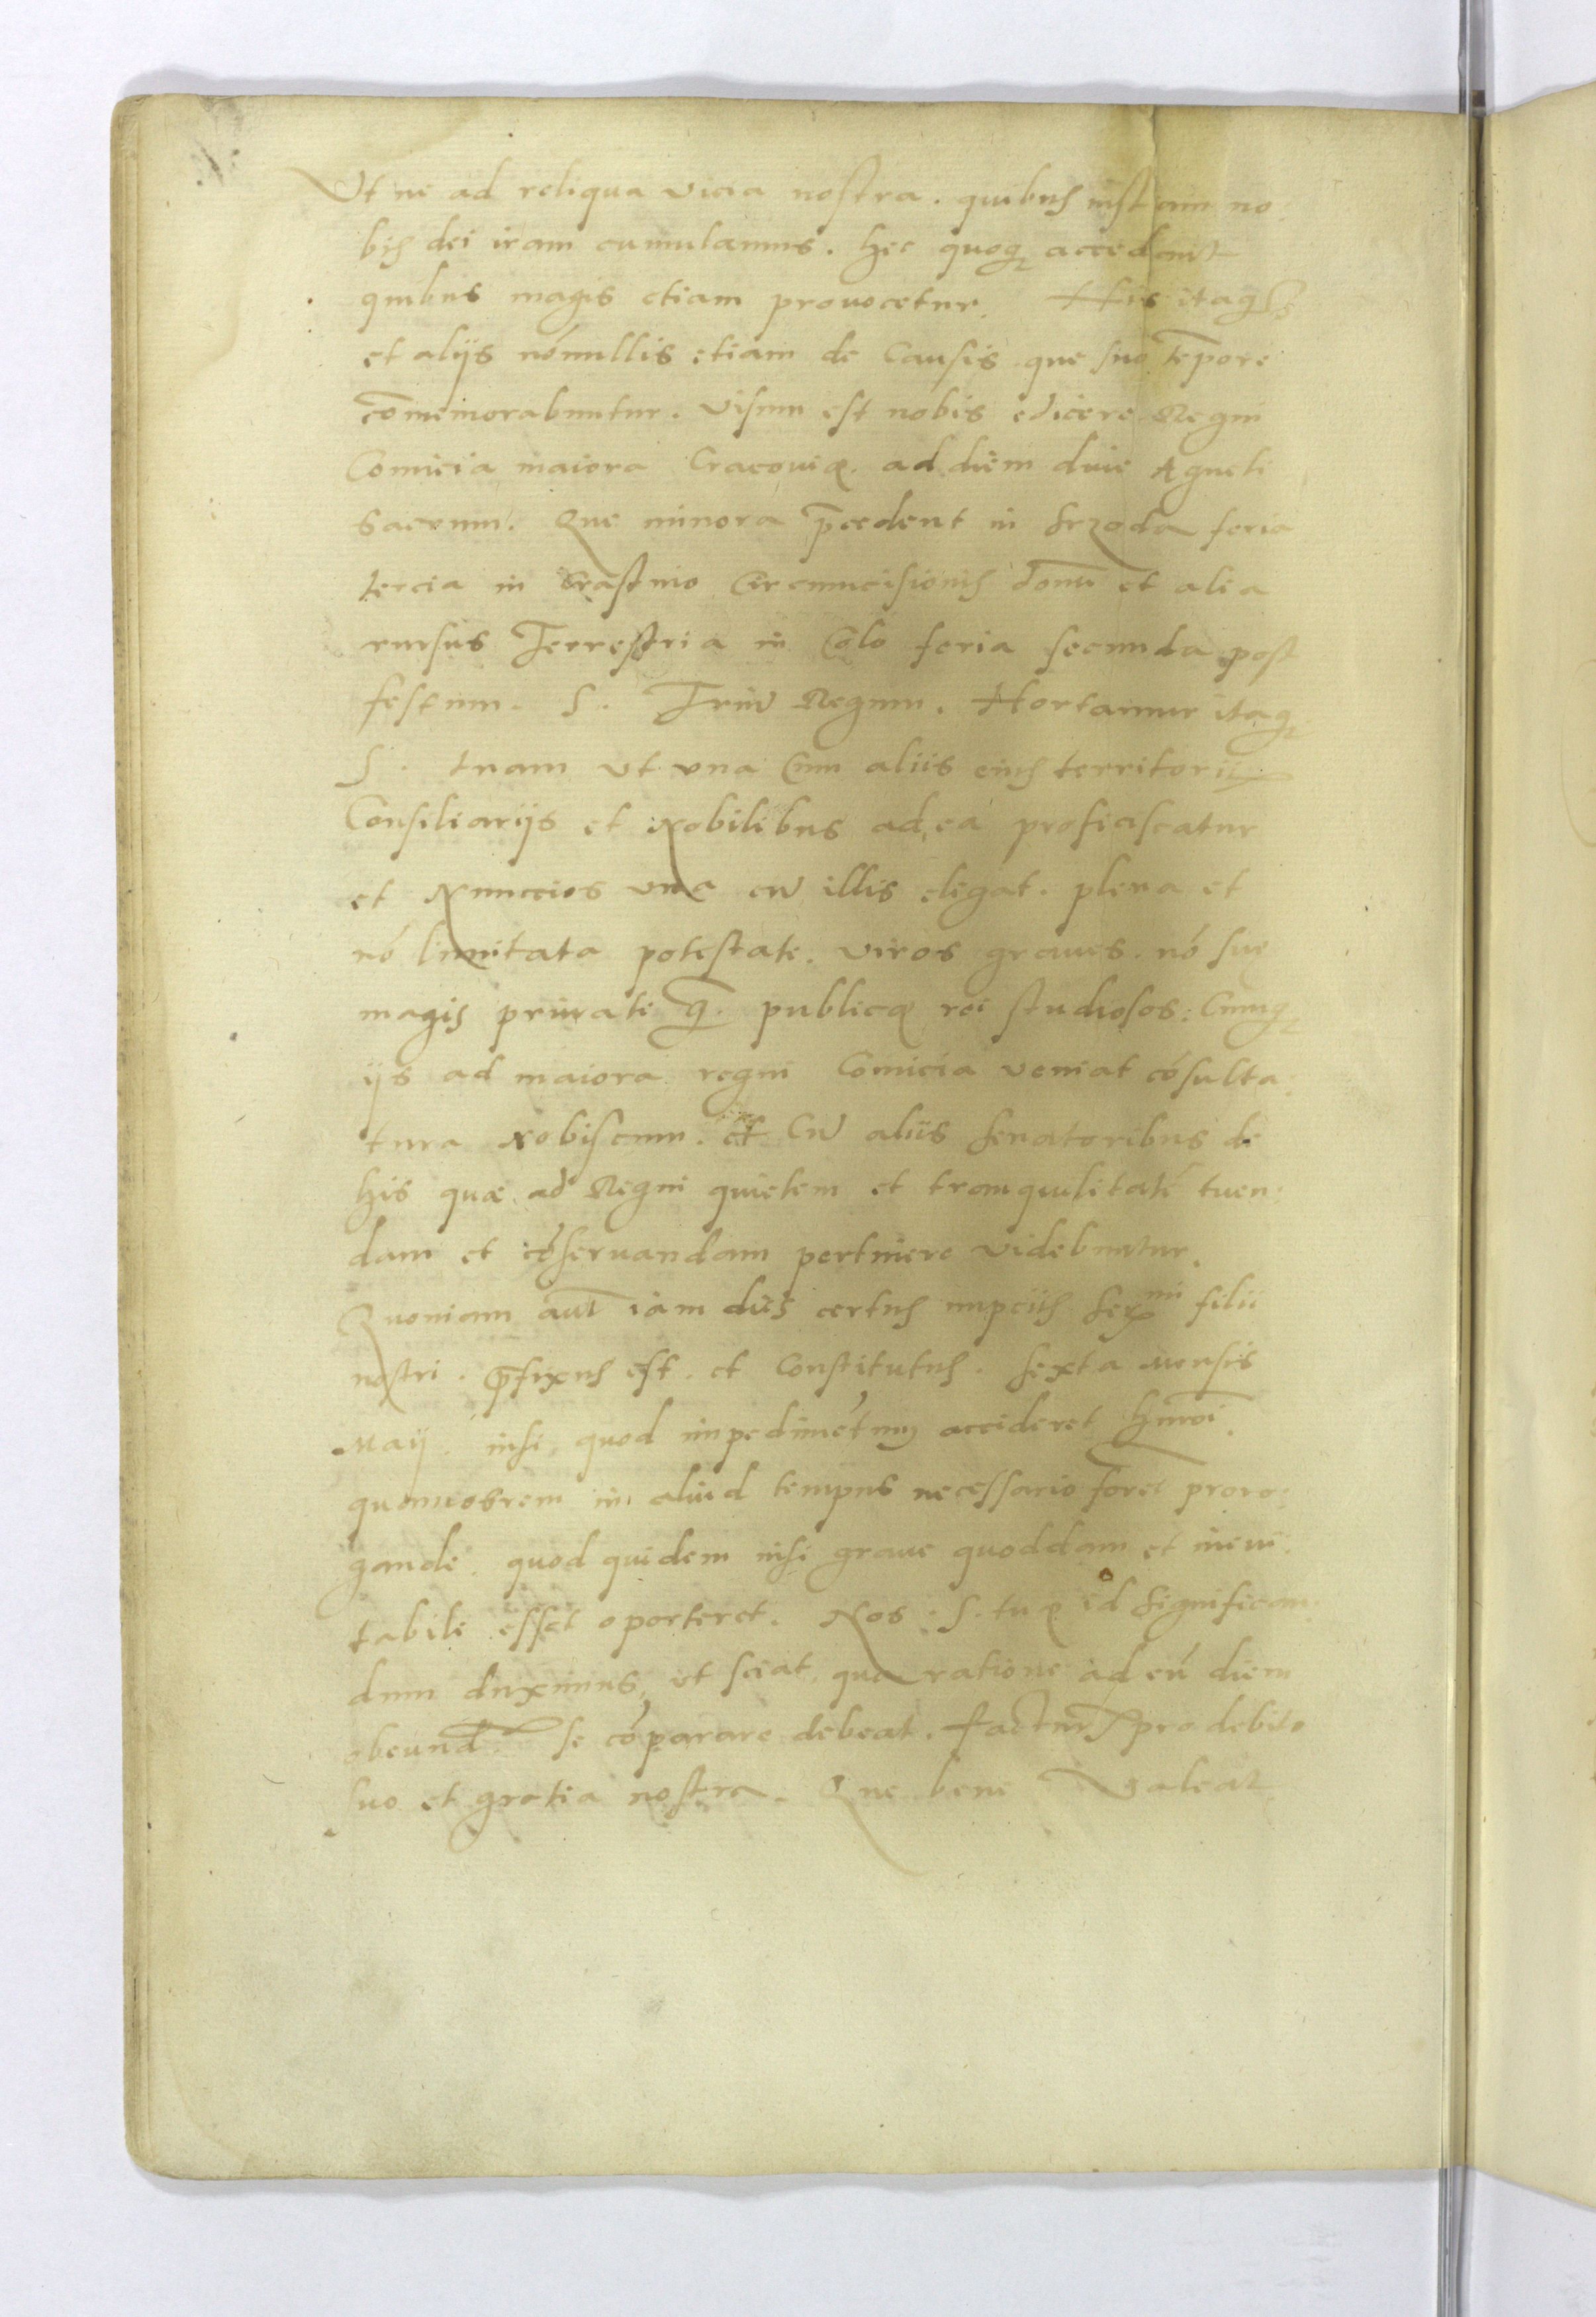 Ut ne ad reliqua vicia nostra. quibus iustam no:
bis dei iram cumulamus. hec quoq3 accedant
quibus magis etiam prouocetur. His itaq3
et alijs nónullis etiam de Causis que suo tēpore
cōmemorabuntur. Visum est nobis edicere Regni
Comicia maiora Cracouię. ad diem diue Agneti
Sacrum. Que minora p̄cedent in Srzoda feria
tercia in Crastino Circumcisionis domī et alia
rursus Terrestria in Colo feria secunda post
festum. S. Triū Regum. Hortamur itaq3
S. tuam ut una Cum aliis eius territorii
Consiliarijs et Nobilibus ad ea proficiscatur
et Nunccios una cū illis elegat. plena et
nó limitata potestate. viros graues. nó sue
magis priuate q̄. publicę rei studiosos: Cumq3
ijs ad maiora regni Comicia veniat cósulta:
tura Nobiscum. et Cū aliis senatoribus de
his quæ ad Regni quietem et tranquilitatē tuen:
dam et cóseruandam pertinere videbuntur.
Quoniam aut̄ iam dies certus nupciis Ser^mi filii
nostri. p̄fixus est. et Constitutus. sexta Mensis
Maij. nisi, quod impedimētum accideret hmōi.
quamobrem in aliud tempus necessario foret proro:
gande. quod quidem nisi graue quoddam et ineui:
tabile esset oporteret. Nos. S. tuę id significan:
dum duximus, ut sciat qua ratione ad eū diem
obeund. se cóparare debeat. factur pro debito
suo et gratia nostra. Que bene Valeat